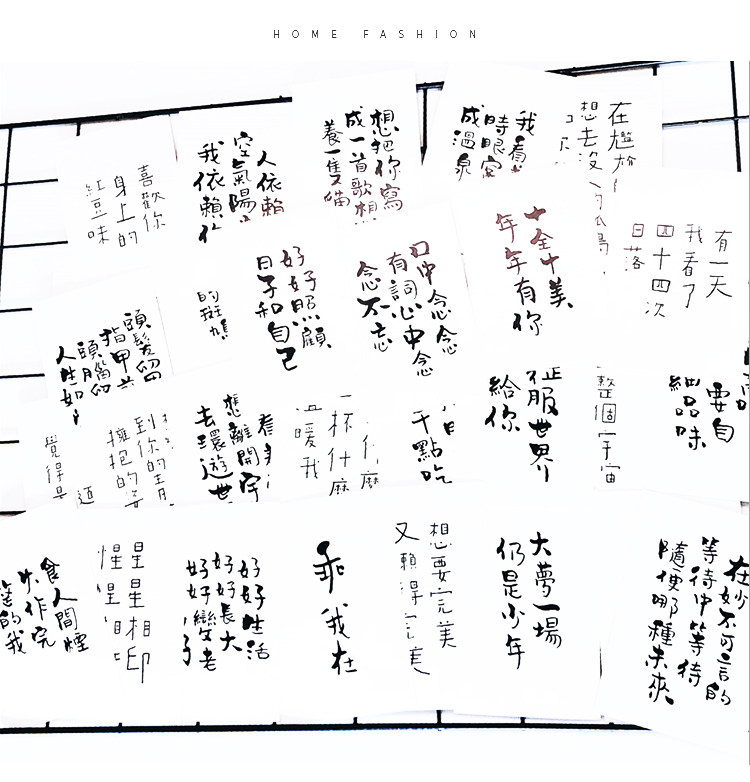 HOME FASHION
喜歡你
身上的
紅豆味
人依賴
空氣陽
我依賴
想把你寫
成一首歌想
養一隻貓
我看
時眼
成溫泉
在尷尬
想去沒
有一天
我看了
四十四次
日落
十全十美
年年有你
口中念念
有詞心中念
念不忘
好好照顧
日子和自己
的
頭髮留
指甲
頭腦留
人生如
到你的
擁抱的
覺得
看
想離開宇
去環遊世
什麼
一杯什麼
溫暖我
千點吃
征服世界
給你
整個宇宙
要自
細品味
食人間煙
作完
的我
星星相印
惺惺相
好好生活
好好長大
好好變老
乖
我在
想要完美
又賴得完美
大夢一場
仍是少年
在妙不可言的
等待中等待
隨便哪種未來